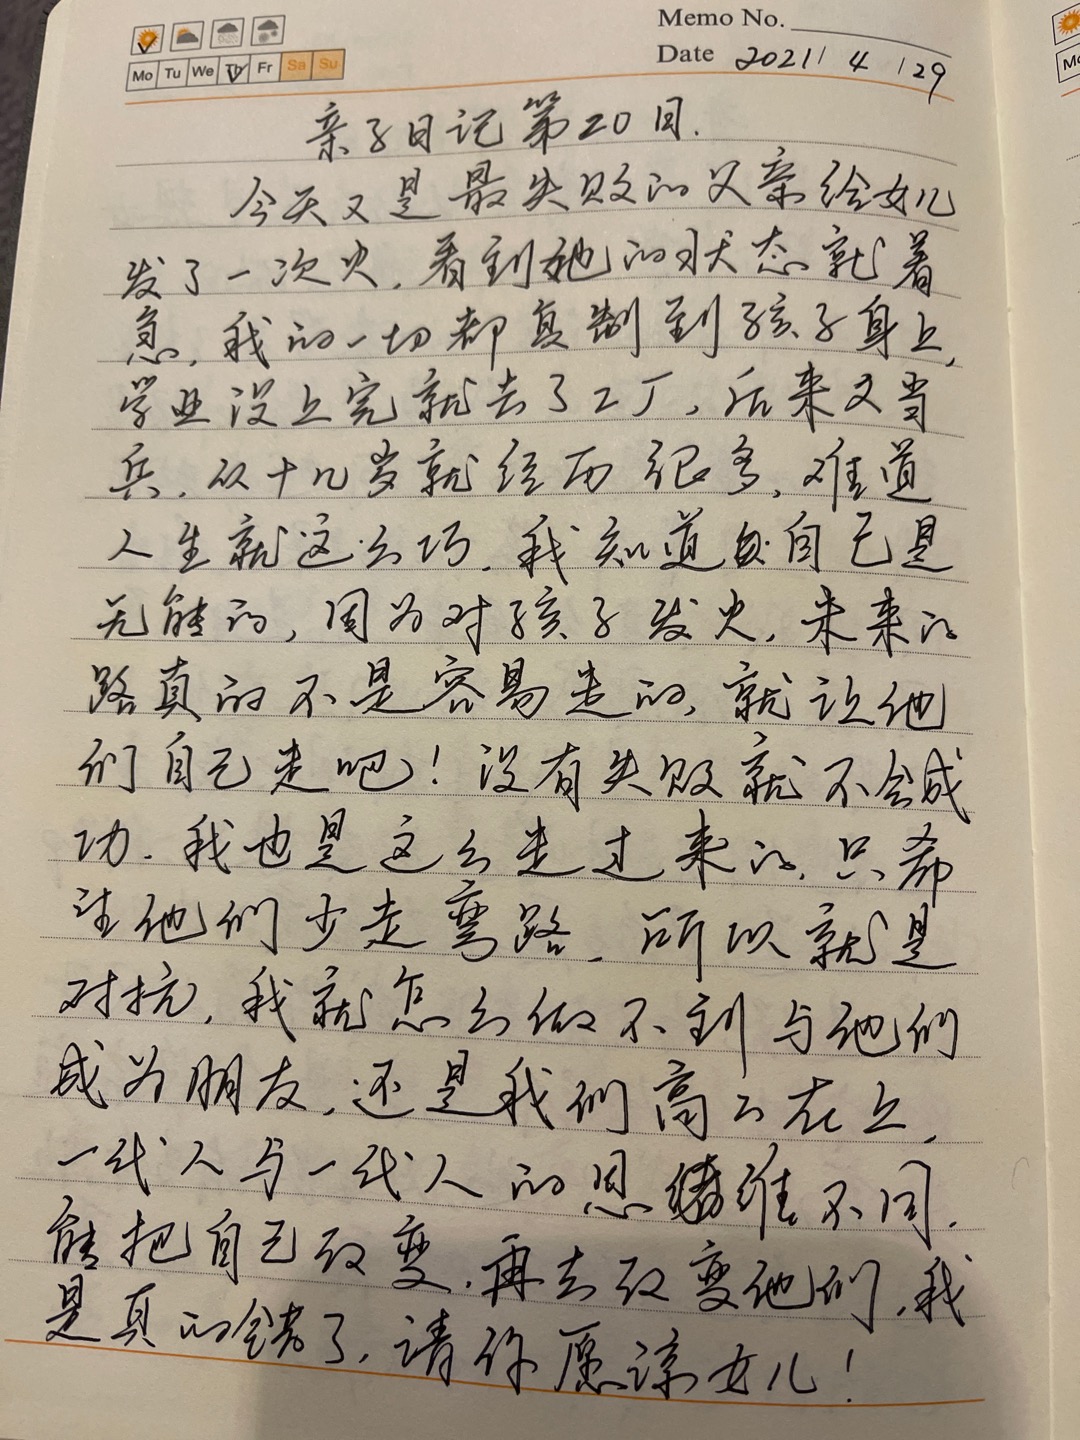 Memo No.
Mo Tu We Th Fr Sa Su
Date 2021/ 4 /29
亲子日记第20回.
今天又是最失败的父亲给女儿
发了一次火,看到她的状态就着
急,我的一切都复制到孩子身上,
学业没上完就去了工厂,后来又当
兵,从十几岁就经历很多,难道
人生就这么巧,我知道自己是
无能的,因为对孩子发火,未来的
路真的不是容易走的,就让他
们自己走吧!没有失败就不会成
功.我也是这么走过来的,只希
望他们少走弯路,所以就是
对抗,我就怎么做不到与他们
成为朋友,还是我们高高在上,
一代人与一代人的思维不同.
能把自己改变,再去改变他们,我
是真的错了,请你愿谅女儿!
Mo